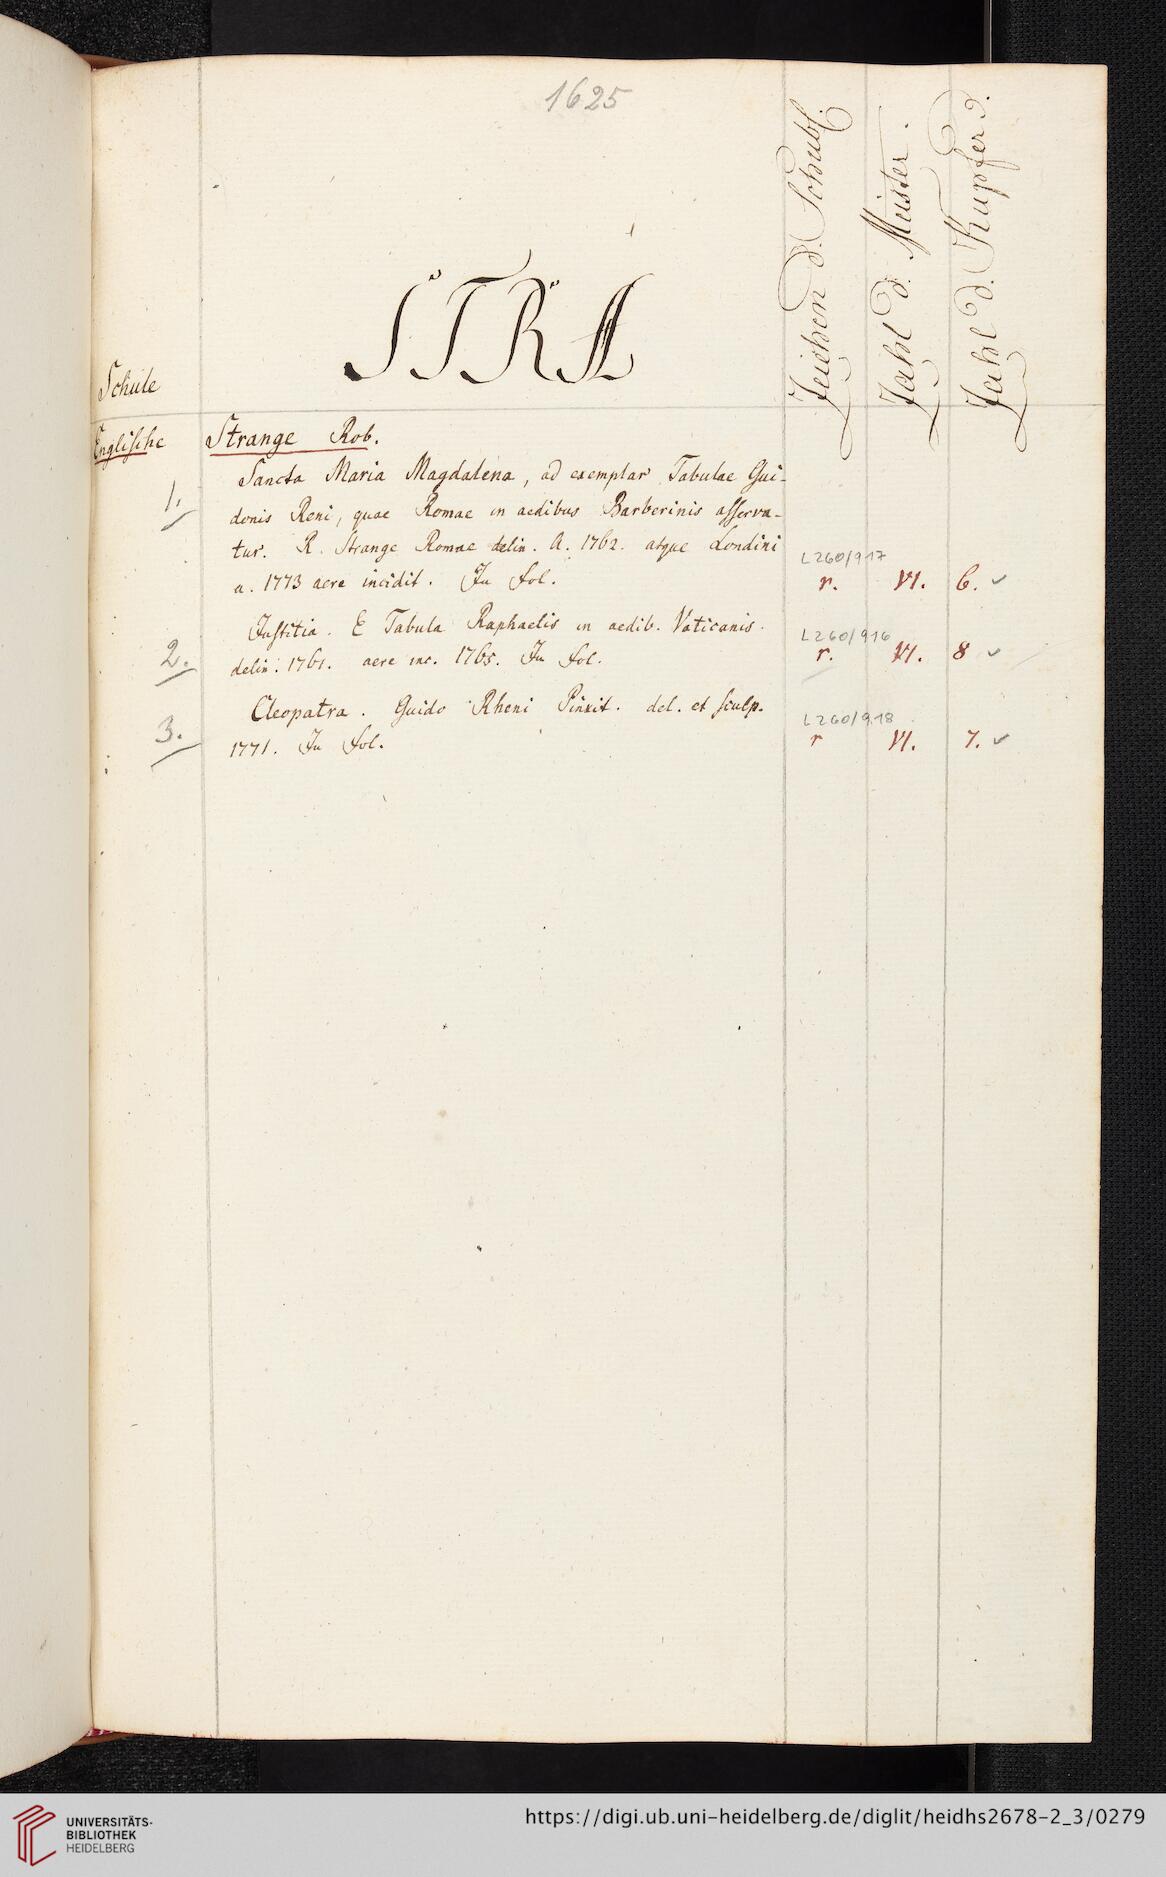 1625
STRA
Schule
Zeichen d. Schubl.
Zahl d. Meister.
Zahl d. Kupfer d.
Englische
Strange Rob.
1.
Sancta Maria Magdalena, ad exemplar Tabulae Gui-
donis Reni, quae Romae in aedibus Barberinis asserva-
tur. R. Strange Romae delin. A. 1762. atque Londini
a. 1773 aere incidit. In fol.
L260/917
r. VI. 6. ✓
2.
Justitia. E Tabula Raphaelis in aedib. Vaticanis.
delin. 1761. aere inc. 1765. In fol.
L260/916
r. VI. 8 ✓
3.
Cleopatra. Guido Rheni Pinxit. del. et sculp.
1771. In fol.
L260/918
r VI. 7. ✓
UNIVERSITÄTS-
BIBLIOTHEK
HEIDELBERG
https://digi.ub.uni-heidelberg.de/diglit/heidhs2678-2_3/0279